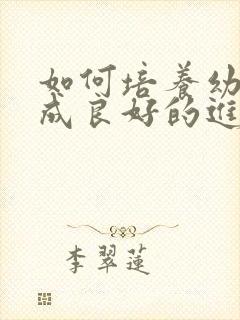 如何培養幼
成良好的進
李翠蓮